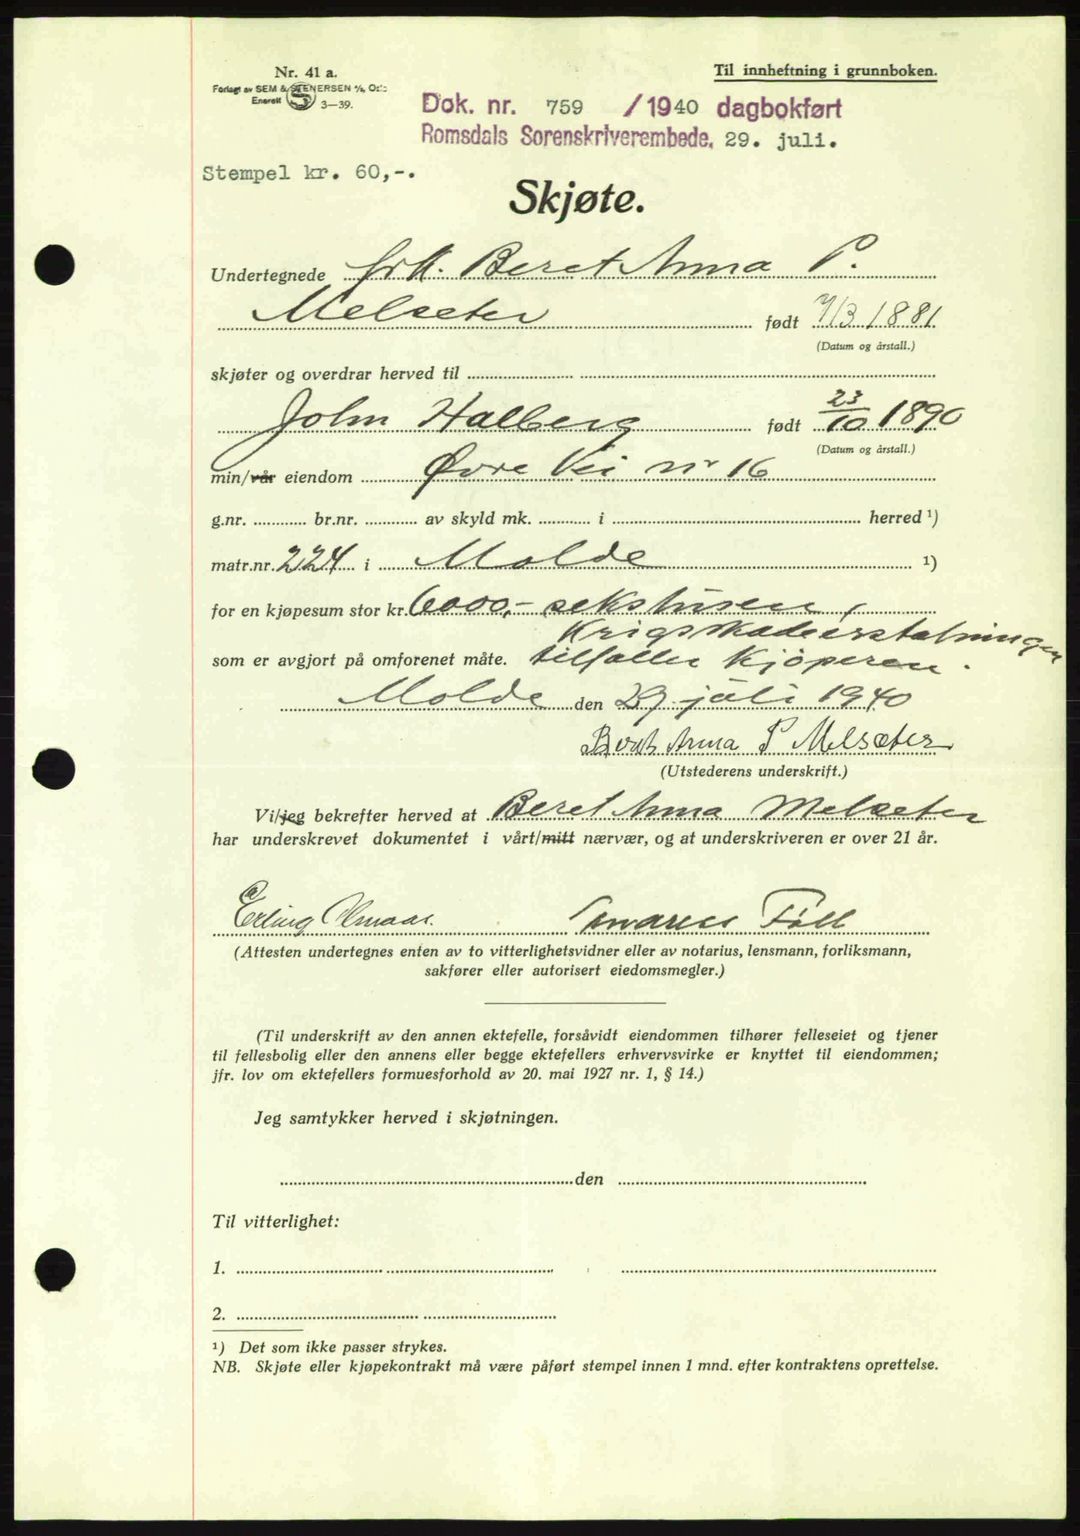 Nr. 41 a.
Til innheftning i grunnboken.
Forlagt av SEM & STENERSEN A/S, Oslo
Enerett 3—39.
Dok. nr. 759 /1940 dagbokført
Romsdals Sorenskriverembede, 29. juli.
Stempel kr. 60,-.
Skjøte.
Undertegnede frk. Beret Anna P.
Melseter født 7/3 1881
(Datum og årstall.)
skjøter og overdrar herved til
John Halberg født 23/10 1890
(Datum og årstall.)
min/vår eiendom Øvre Vei nr 16
g.nr. br.nr. av skyld mk. i herred ¹)
matr.nr. 224 i Molde ¹)
for en kjøpesum stor kr. 6000,- sekstusen,
Krigsskadeerstatningen
som er avgjort på omforenet måte. tilfaller kjöperen.
Molde den 29 juli 1940
Beret Anna P Melsæter
(Utstederens underskrift.)
Vi/jeg bekrefter herved at Beret Anna Melseter
har underskrevet dokumentet i vårt/mitt nærvær, og at underskriveren er over 21 år.
Erling
(Attesten undertegnes enten av to vitterlighetsvidner eller av notarius, lensmann, forliksmann,
sakfører eller autorisert eiedomsmegler.)
(Til underskrift av den annen ektefelle, forsåvidt eiendommen tilhører felleseiet og tjener
til fellesbolig eller den annens eller begge ektefellers erhvervsvirke er knyttet til eiendommen;
jfr. lov om ektefellers formuesforhold av 20. mai 1927 nr. 1, § 14.)
Jeg samtykker herved i skjøtningen.
den
Til vitterlighet:
1.
2.
¹) Det som ikke passer strykes.
NB. Skjøte eller kjøpekontrakt må være påført stempel innen 1 mnd. efter kontraktens oprettelse.